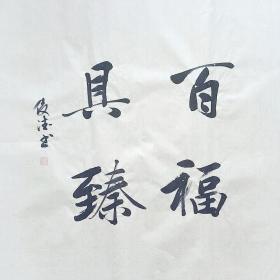 百福
具臻